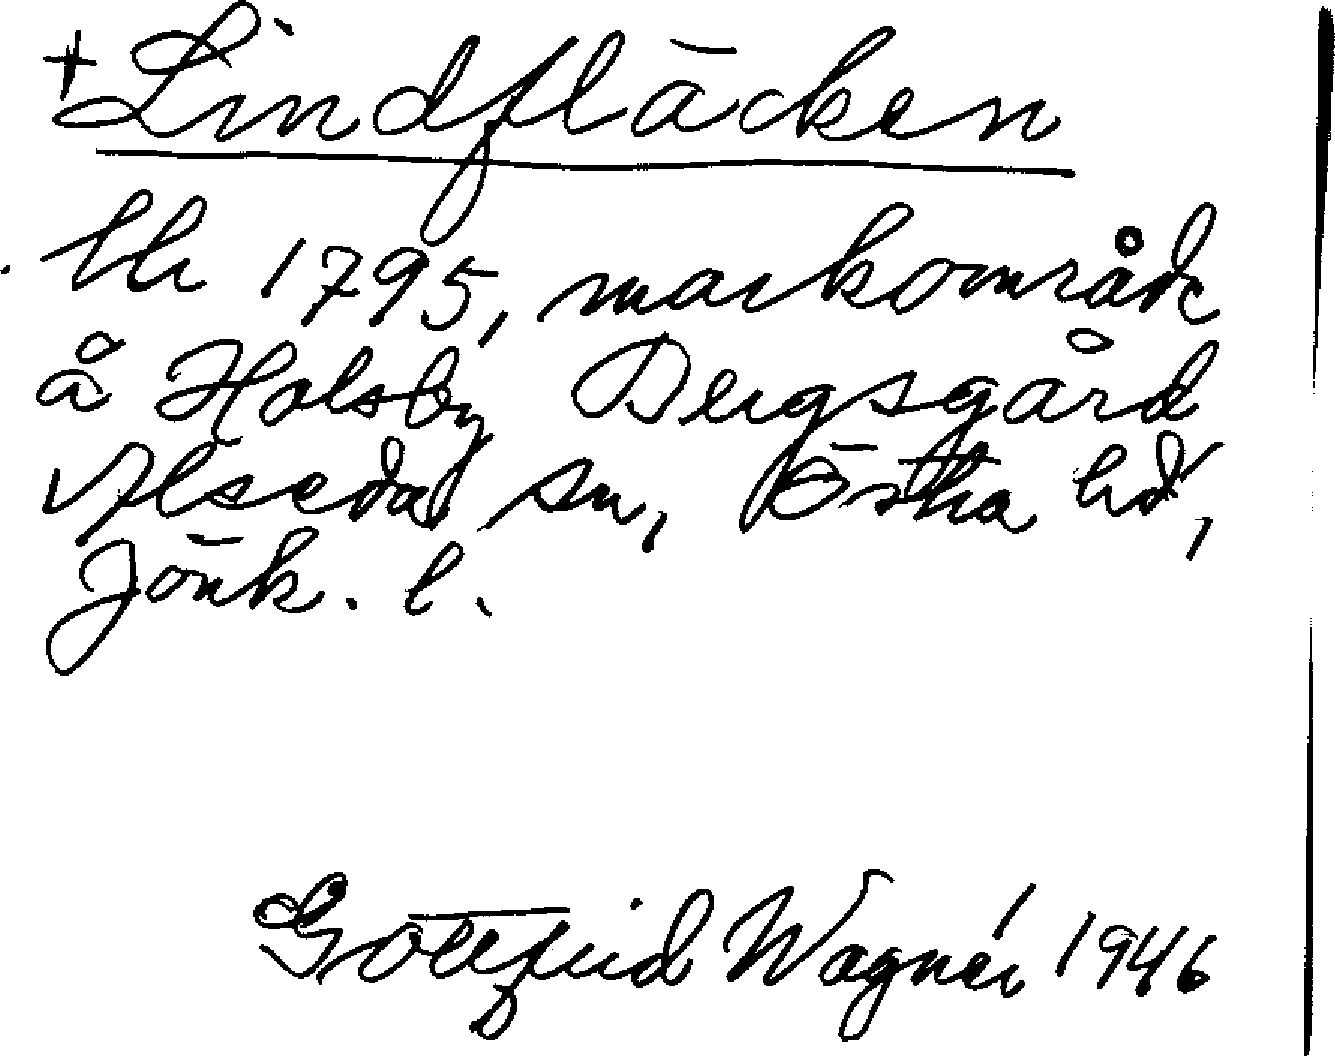 + Lindfläcken
Uh 1795, markområde
å Holsby Bergsgård
Alseda sn, Östra hd,
Jönk. l.
Gottfrid Wagnér 1946